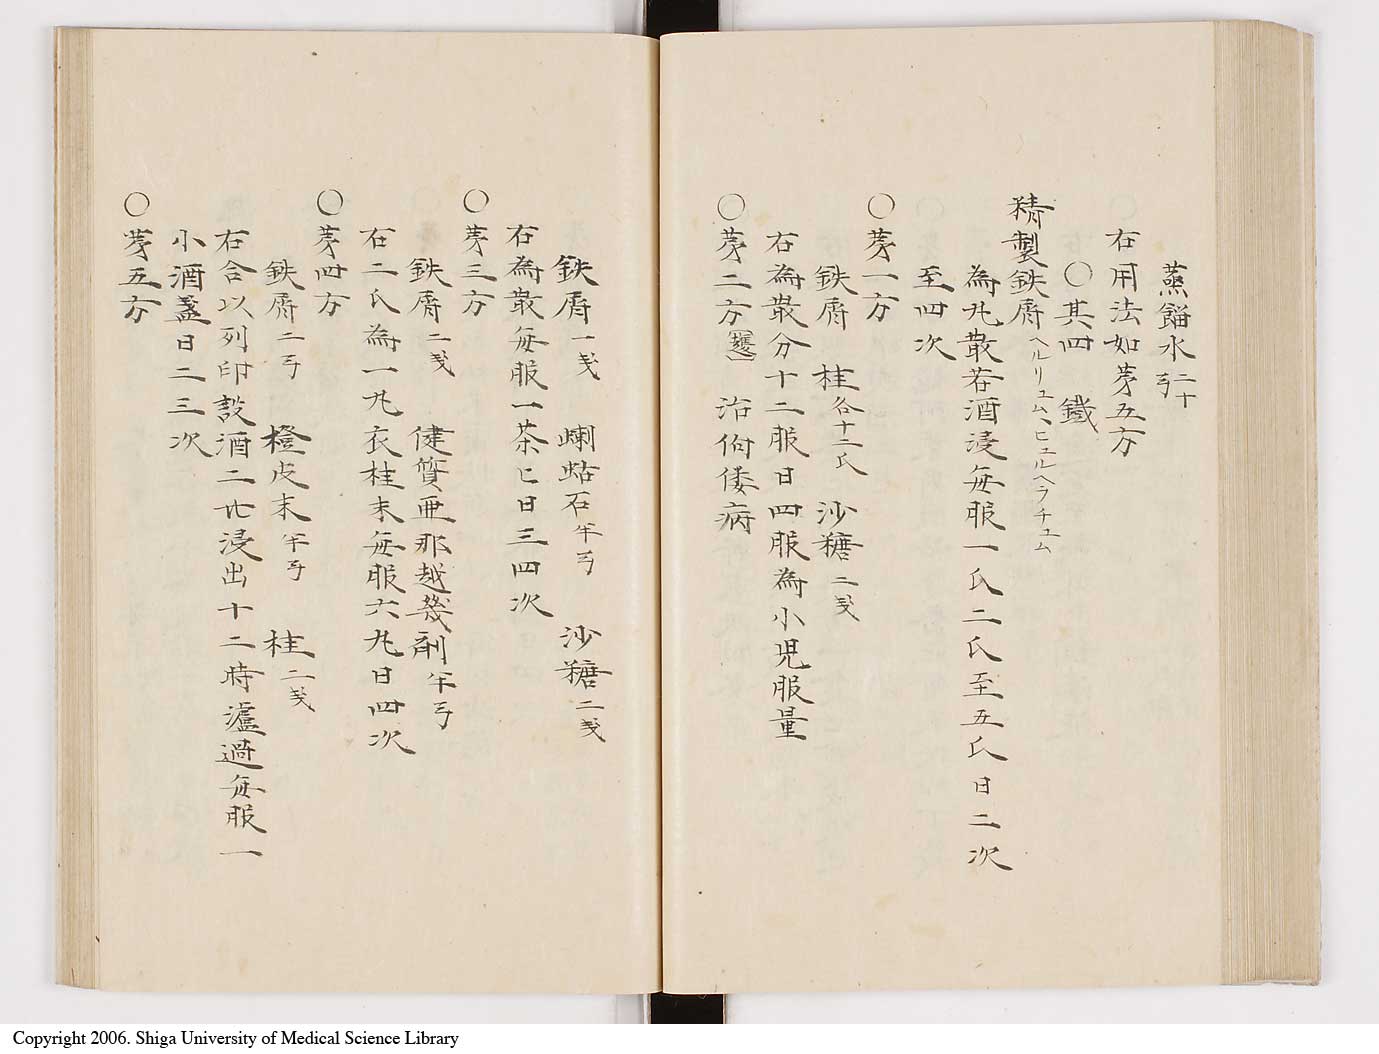 蒸餾水二十㐧
右用法如苐五方
〇其四 鐵
精製鉄屑ヘルリュム、ヒュルヘラチュム
為丸散若酒浸毎服一氏二氏至五氏日二次
至四次
〇苐一方
鉄屑 桂各十二氏 沙糖二戔
右為散分十二服日四服為小児服量
〇苐二方 治佝倭病
鉄屑一戔 蝲蛄石半㐧 沙糖二戔
右為散毎服一茶匕日三四次
〇苐三方
鉄屑二戔 健質亜那越幾剤半㐧
右二氏為一丸衣桂末毎服六丸日四次
〇苐四方
鉄屑二㐧 橙皮末半㐧 桂二戔
右合以列印設酒二廿浸出十二時濾過毎服一
小酒盞日二三次
〇苐五方
Copyright 2006. Shiga University of Medical Science Library